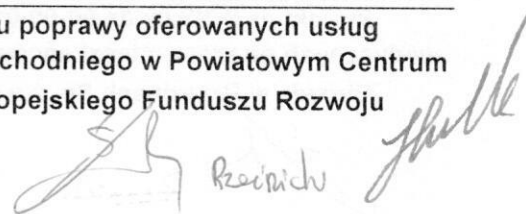 u poprawy oferowanych usług
chodniego w Powiatowym Centrum
opejskiego Funduszu Rozwoju